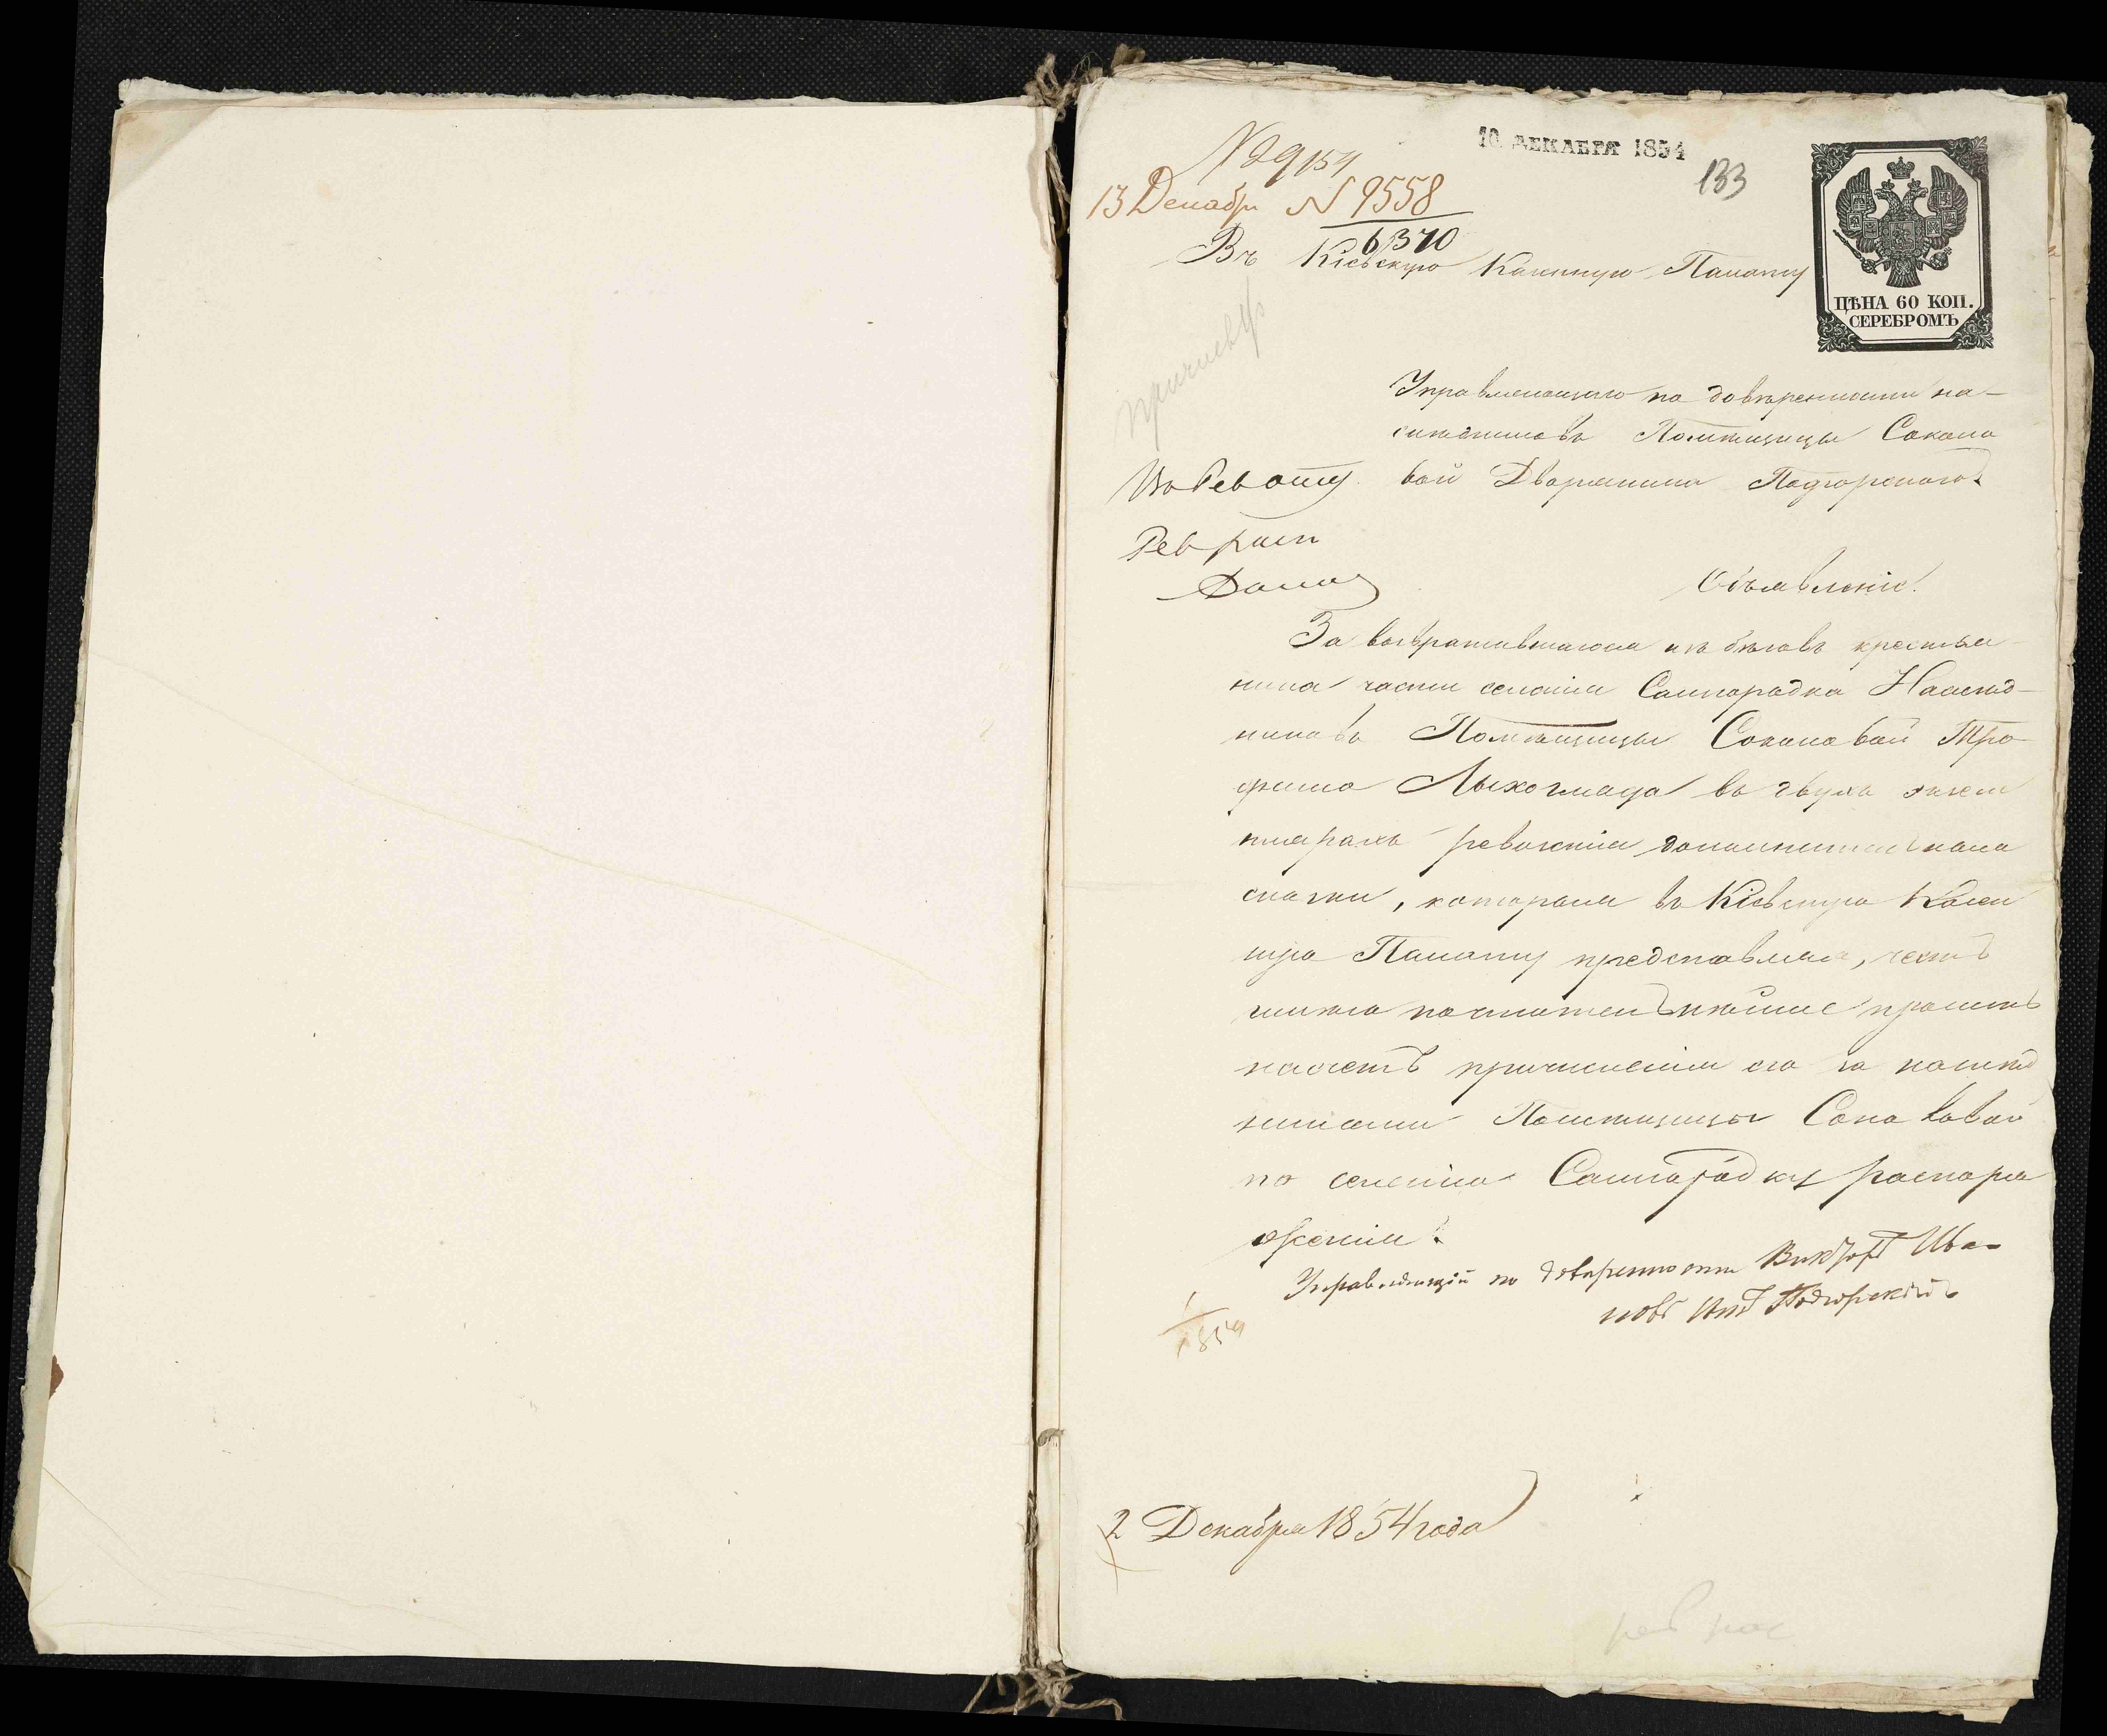 10 ДЕКАБРЯ 1854
133
№ 29154
13 Декабр N 9558
6370
Въ Кіевскую Казенную Палату
ЦѢНА 60 КОП.
СЕРЕБРОМЪ
причисл
Управляющаго по довѣренности на-
слѣдниковъ Помѣщицы Соколо
вой Дворянина Подгорскаго.
Рев
Объявленіе.
За возвратившагося изъ бѣговъ крестья
нина части селенія Самгородка Наслѣд-
никовъ Помѣщицы Соколовой Тро
фима Лыхогляда въ двухъ экзем
плярахъ ревизкия дополнительная
сказки, которая въ Кіевскую Казен
ную Палату представляя, честь
имѣю почтительнѣйше просить
насчетъ причисленія его за наслѣд
никами Помѣщицы Соколовой
по селенію Самгородку распоря
женія.
Управляющій по довѣренности Викторъ Ива-
новъ Подгорскій
1854
2 Декабря 1854 года
рев